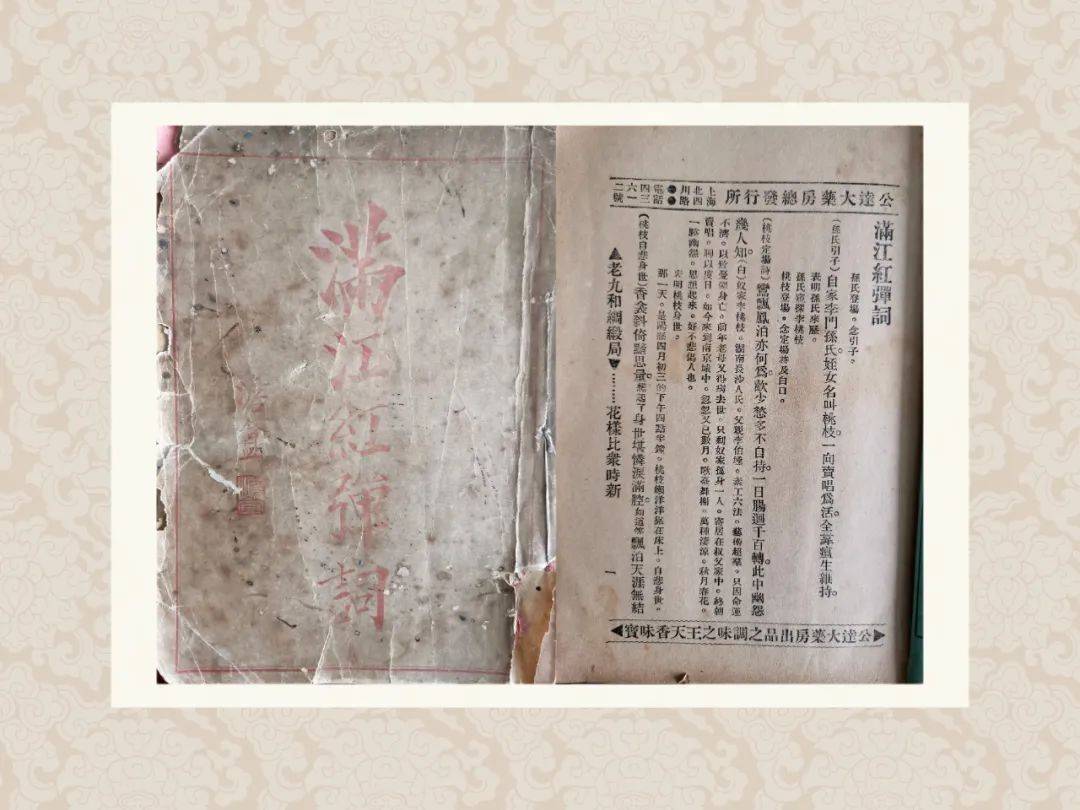 滿江紅彈詞
公達大藥房總發行所
上海北四川路
電話四三六一二號
滿江紅彈詞
孫氏登場。念引子。
(孫氏引子)自家李門孫氏。姪女名叫桃枝。一向賣唱爲活。全靠瘟生維持。
表明孫氏來歷。
孫氏窺探李桃枝
桃枝登場。念定場詩及白口。
(桃枝定場詩)鸞飄鳳泊亦何爲。歡少愁多不自持。一日腸迴千百轉。此中幽怨
幾人知。(白)奴家李桃枝。湖南長沙人氏。父親李伯塤。素工六法。藝術超羣。只因命運
不濟。以致憂鬱身亡。前年老母又得病去世。只剩奴家孤身一人。寄居在叔父家中。終朝
賣唱。詞以度日。如今來到南京城中。忽忽又已數月。歌臺舞榭。萬種淒涼。秋月春花。
一腔幽怨。思想起來。好不悲傷人也。
表明桃枝身世。
那一天。是陽歷四月初三的下午四點半鐘。桃枝懶洋洋靠在床上。自悲身世。
(桃枝自悲身世)香衾斜倚黯思量。想起了身世堪憐淚滿腔。飄泊天涯無結
▲老九和綢緞局▼………花樣比衆時新
一
公達大藥房出品之調味之王天香味寶